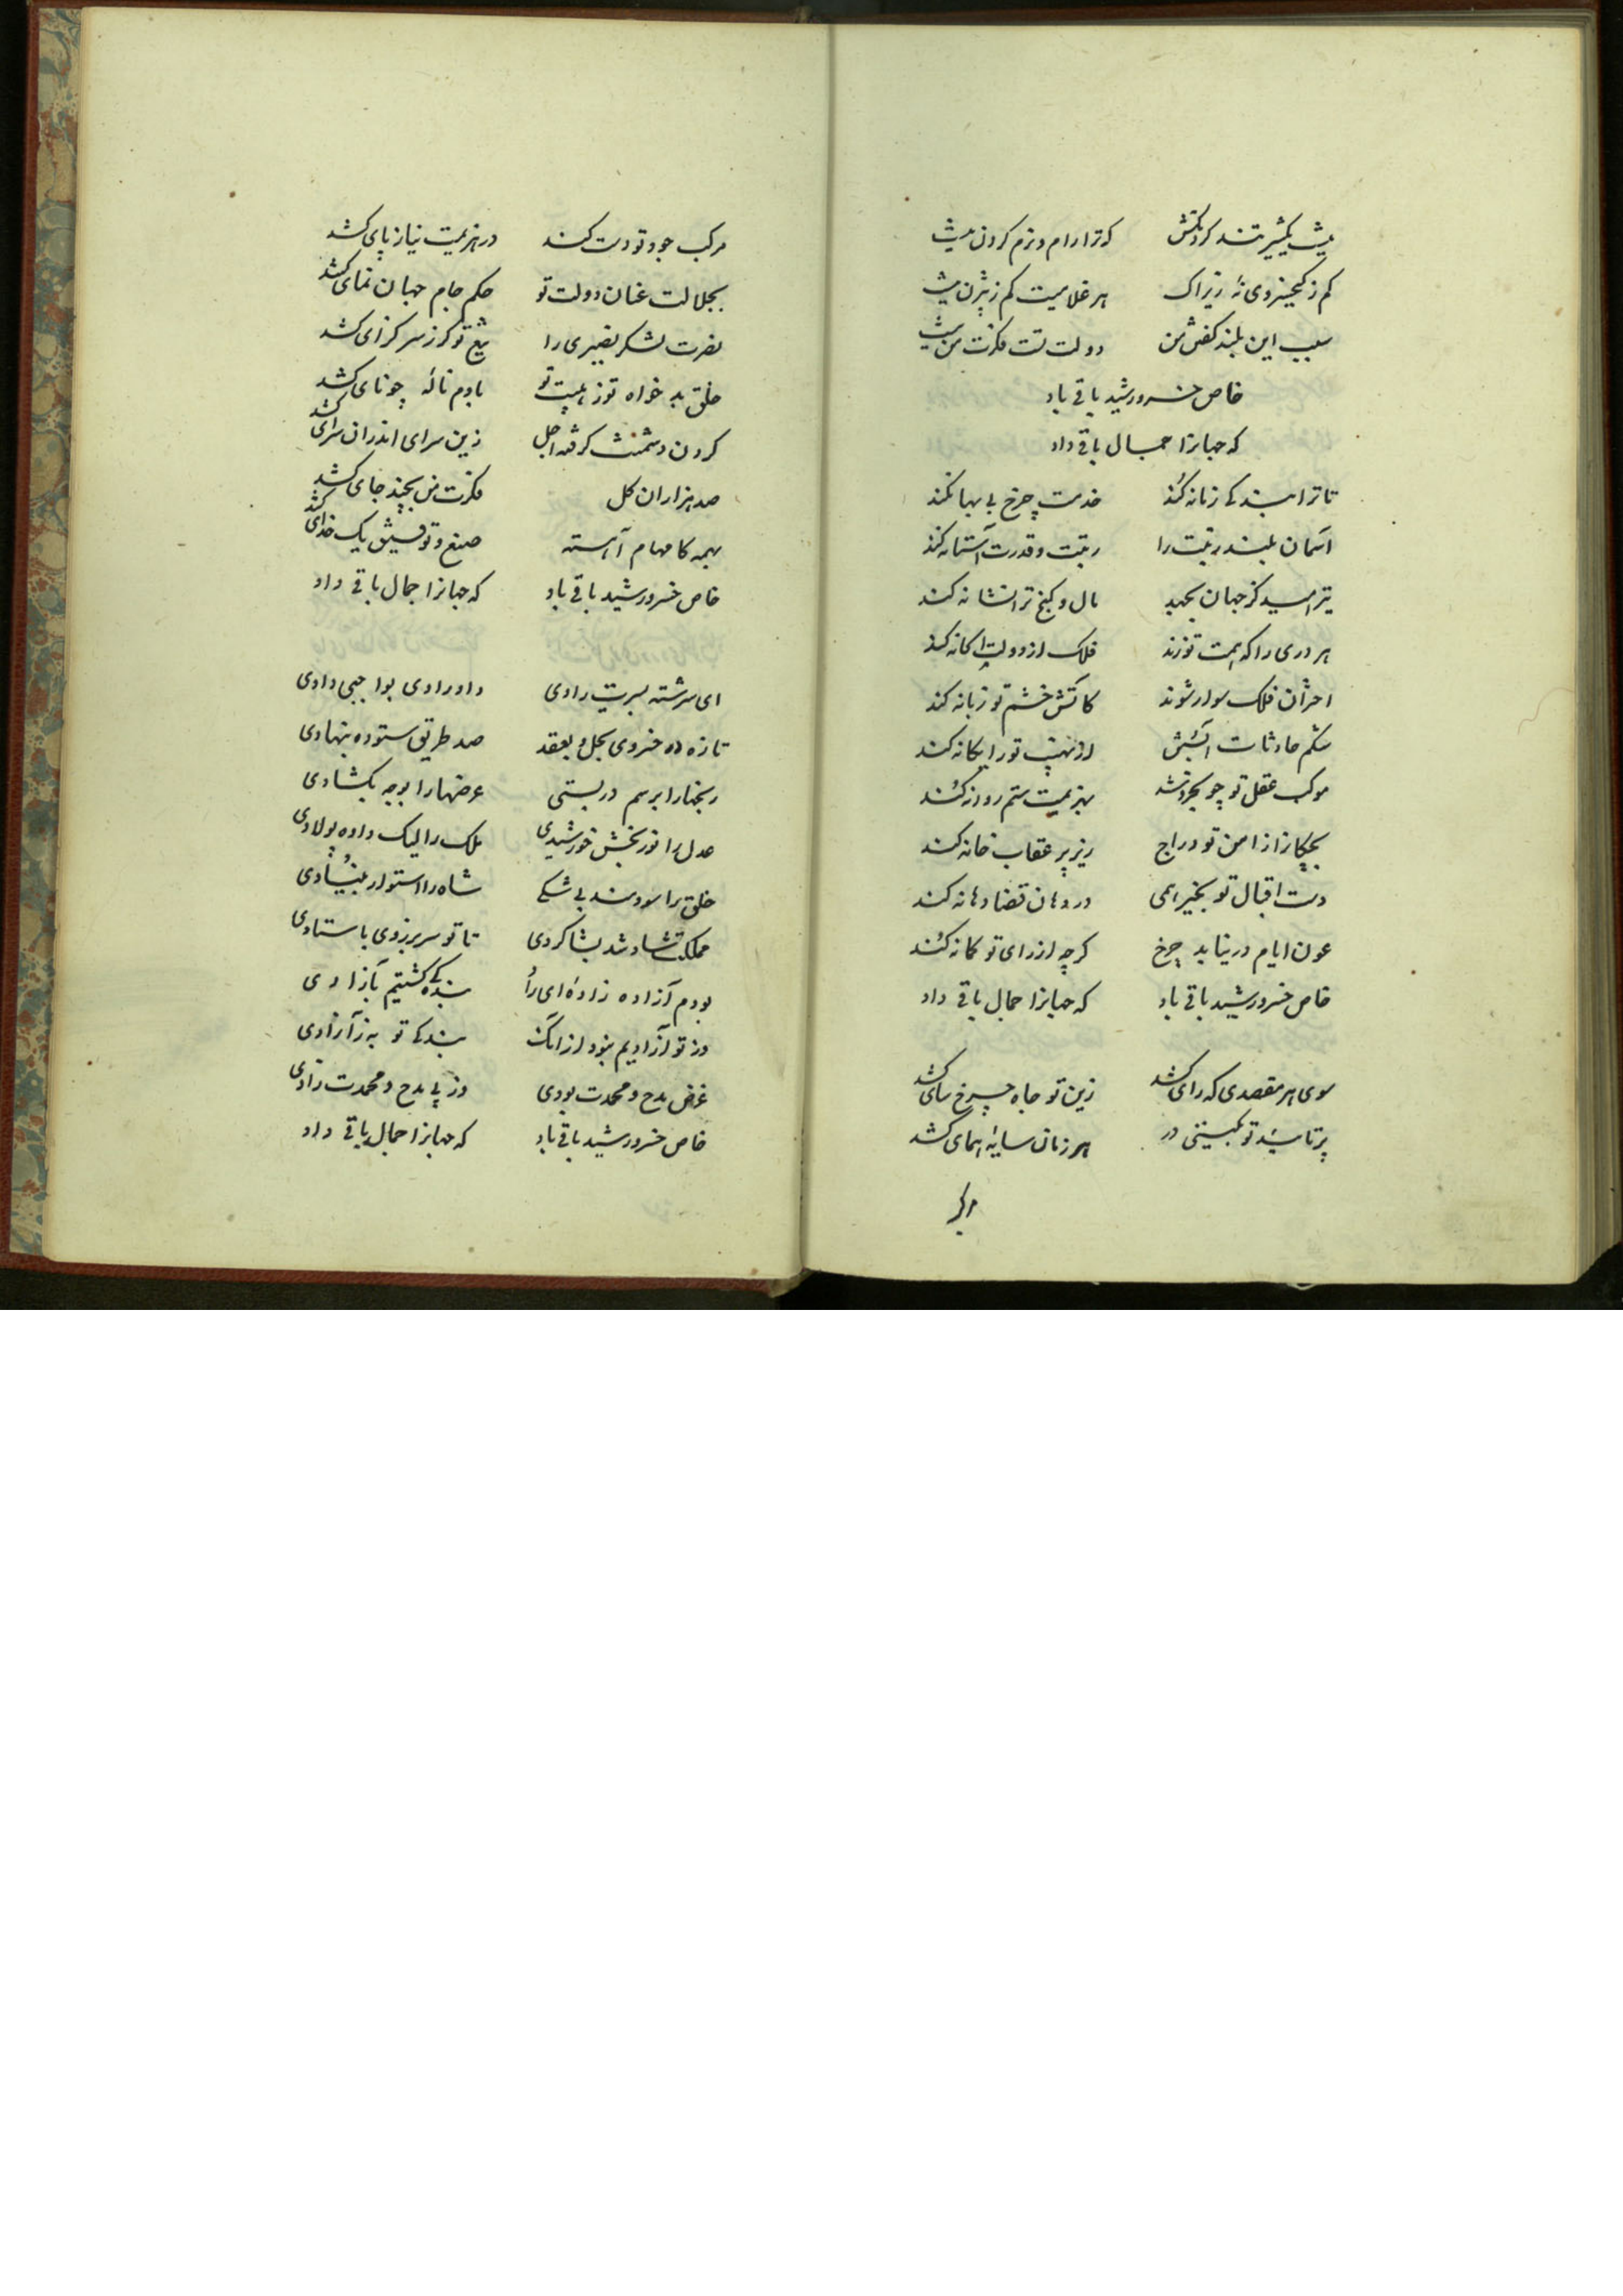 نیست یکشیر تند گردنکش که ترا رام و نرم گردن نیست
کم ز کیخسروی نهٔ زیراک هر غلامیت کم ز بیژن نیست
سبب این بلند گفتن من دولت تست فکرت من نیست
خاص خسرو رشید باقی باد
که جهانرا جمال باقی داد
تا ترا بندگی زمانه کند خدمت چرخ بی بهانه کند
آسمان بلند رتبت را رتبت و قدرت آستانه کند
تیر امید کز جهان بجهد مال و گنج ترا نشانه کند
هر دری را که همت تو زند فلک از دولت
اختران فلک سوار شوند کاتش خشم تو زبانه کند
شکم حادثات آتش از نهیب تو رایگانه کند
موکب عقل تو چو بهزیمت ستم روانه کند
از امن تو دراج زیر پر عقاب خانه کند
دست اقبال تو بخیر همی در دهان قضا دهانه کند
عون ایام در نیابد چرخ گرچه از رای تو کمانه کند
خاص خسرو رشید باقی باد که جهانرا جمال باقی داد
سوی هر مقصدی که رای کشد زین تو جاه چرخ سای کشد
بر تو گیتی در هر زمان سایهٔ همای کشد
مرکب جود تو دست کند در هزیمت نیاز پای کشد
بجلالت عنان دولت تو حکم جام جهان نمای کشد
نصرت لشکر نصیری را تیغ تو گرز سر گزای کشد
خلق بدخواه تو ز هیبت تو با دم ناله چو نای کشد
گردن دشمنت گرفته اجل زین سرای اندران سرای کشد
صد هزاران کل فکرت من بچند جای کشد
بهمه کامهام آهسته صنع و توفیق یک خدای کشد
خاص خسرو رشید باقی باد که جهانرا جمال باقی داد
ای سرشته بسرت رادی داد رادی بواجبی دادی
تازه ده خسروی بحل و بعقد صد طریق ستوده بنهادی
رنجها را برسم در بستی عرضها را بوجه بگشادی
عدل را نور بخش خورشیدی ملک را لیک داده پولادی
خلق را سودمند بی شکی شاه را استوار بنیادی
مملکت شاد شد بشاگردی تا تو سر بر زدی باستادی
بودم آزاده زادهٔ ای راد بنده گشتیم بآزادی
وز تو آزادیم نبود از آنک بندگی تو به ز آزادی
غرض مدح و محمدت بودی وز پی مدح و محمدت زادی
خاص خسرو رشید باقی باد که جهانرا جمال باقی داد